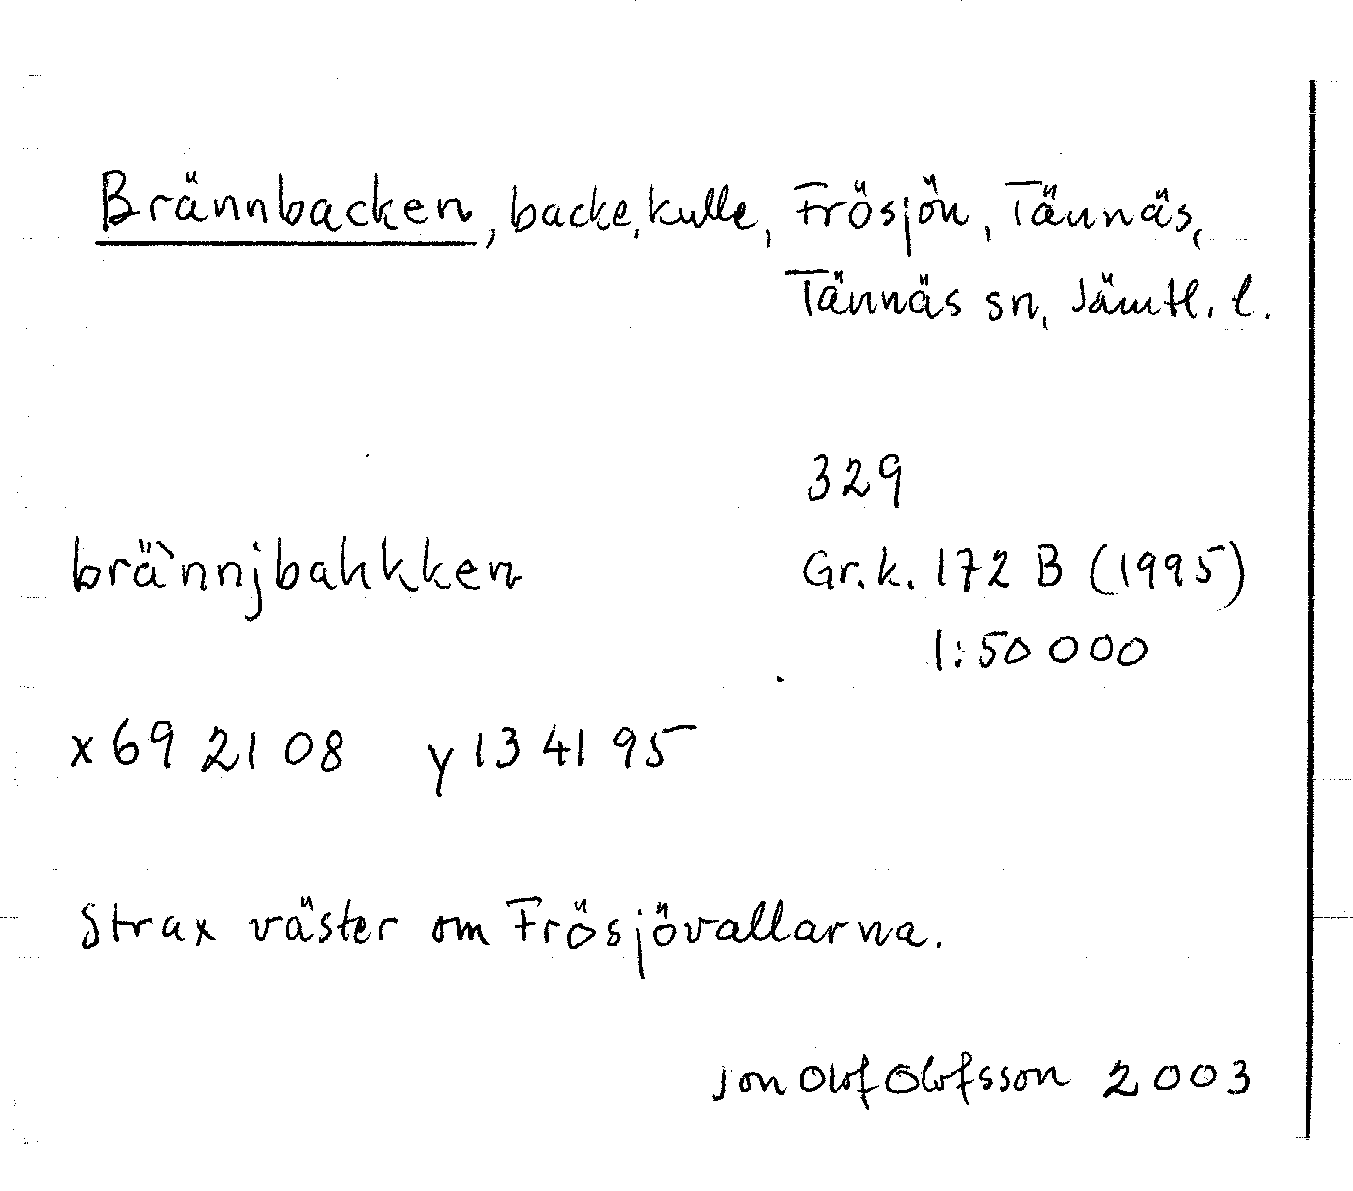 Brännbacken, backe, kulle, Frösjön, Tännäs,
Tännäs sn, Jämtl. l.
329
brä̀nnjbahkken Gr.k. 172 B (1995)
1:50 000
x 69 21 08 y 13 41 95
Strax väster om Frösjövallarna.
Jon Olof Olofsson 2003